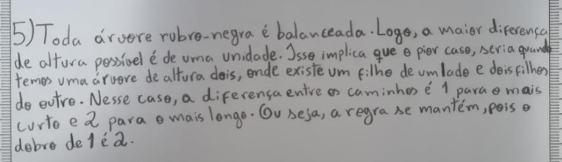 5) Toda árvore rubro-negra é balanceada. Logo, a maior diferença
de altura possível é de uma unidade. Isso implica que o pior caso, seria quando
temos uma árvore de altura dois, onde existe um filho de um lado e dois filhos
do outro. Nesse caso, a diferença entre os caminhos é 1 para o mais
curto e 2 para o mais longo. Ou seja, a regra se mantém, pois o
dobro de 1 é 2.